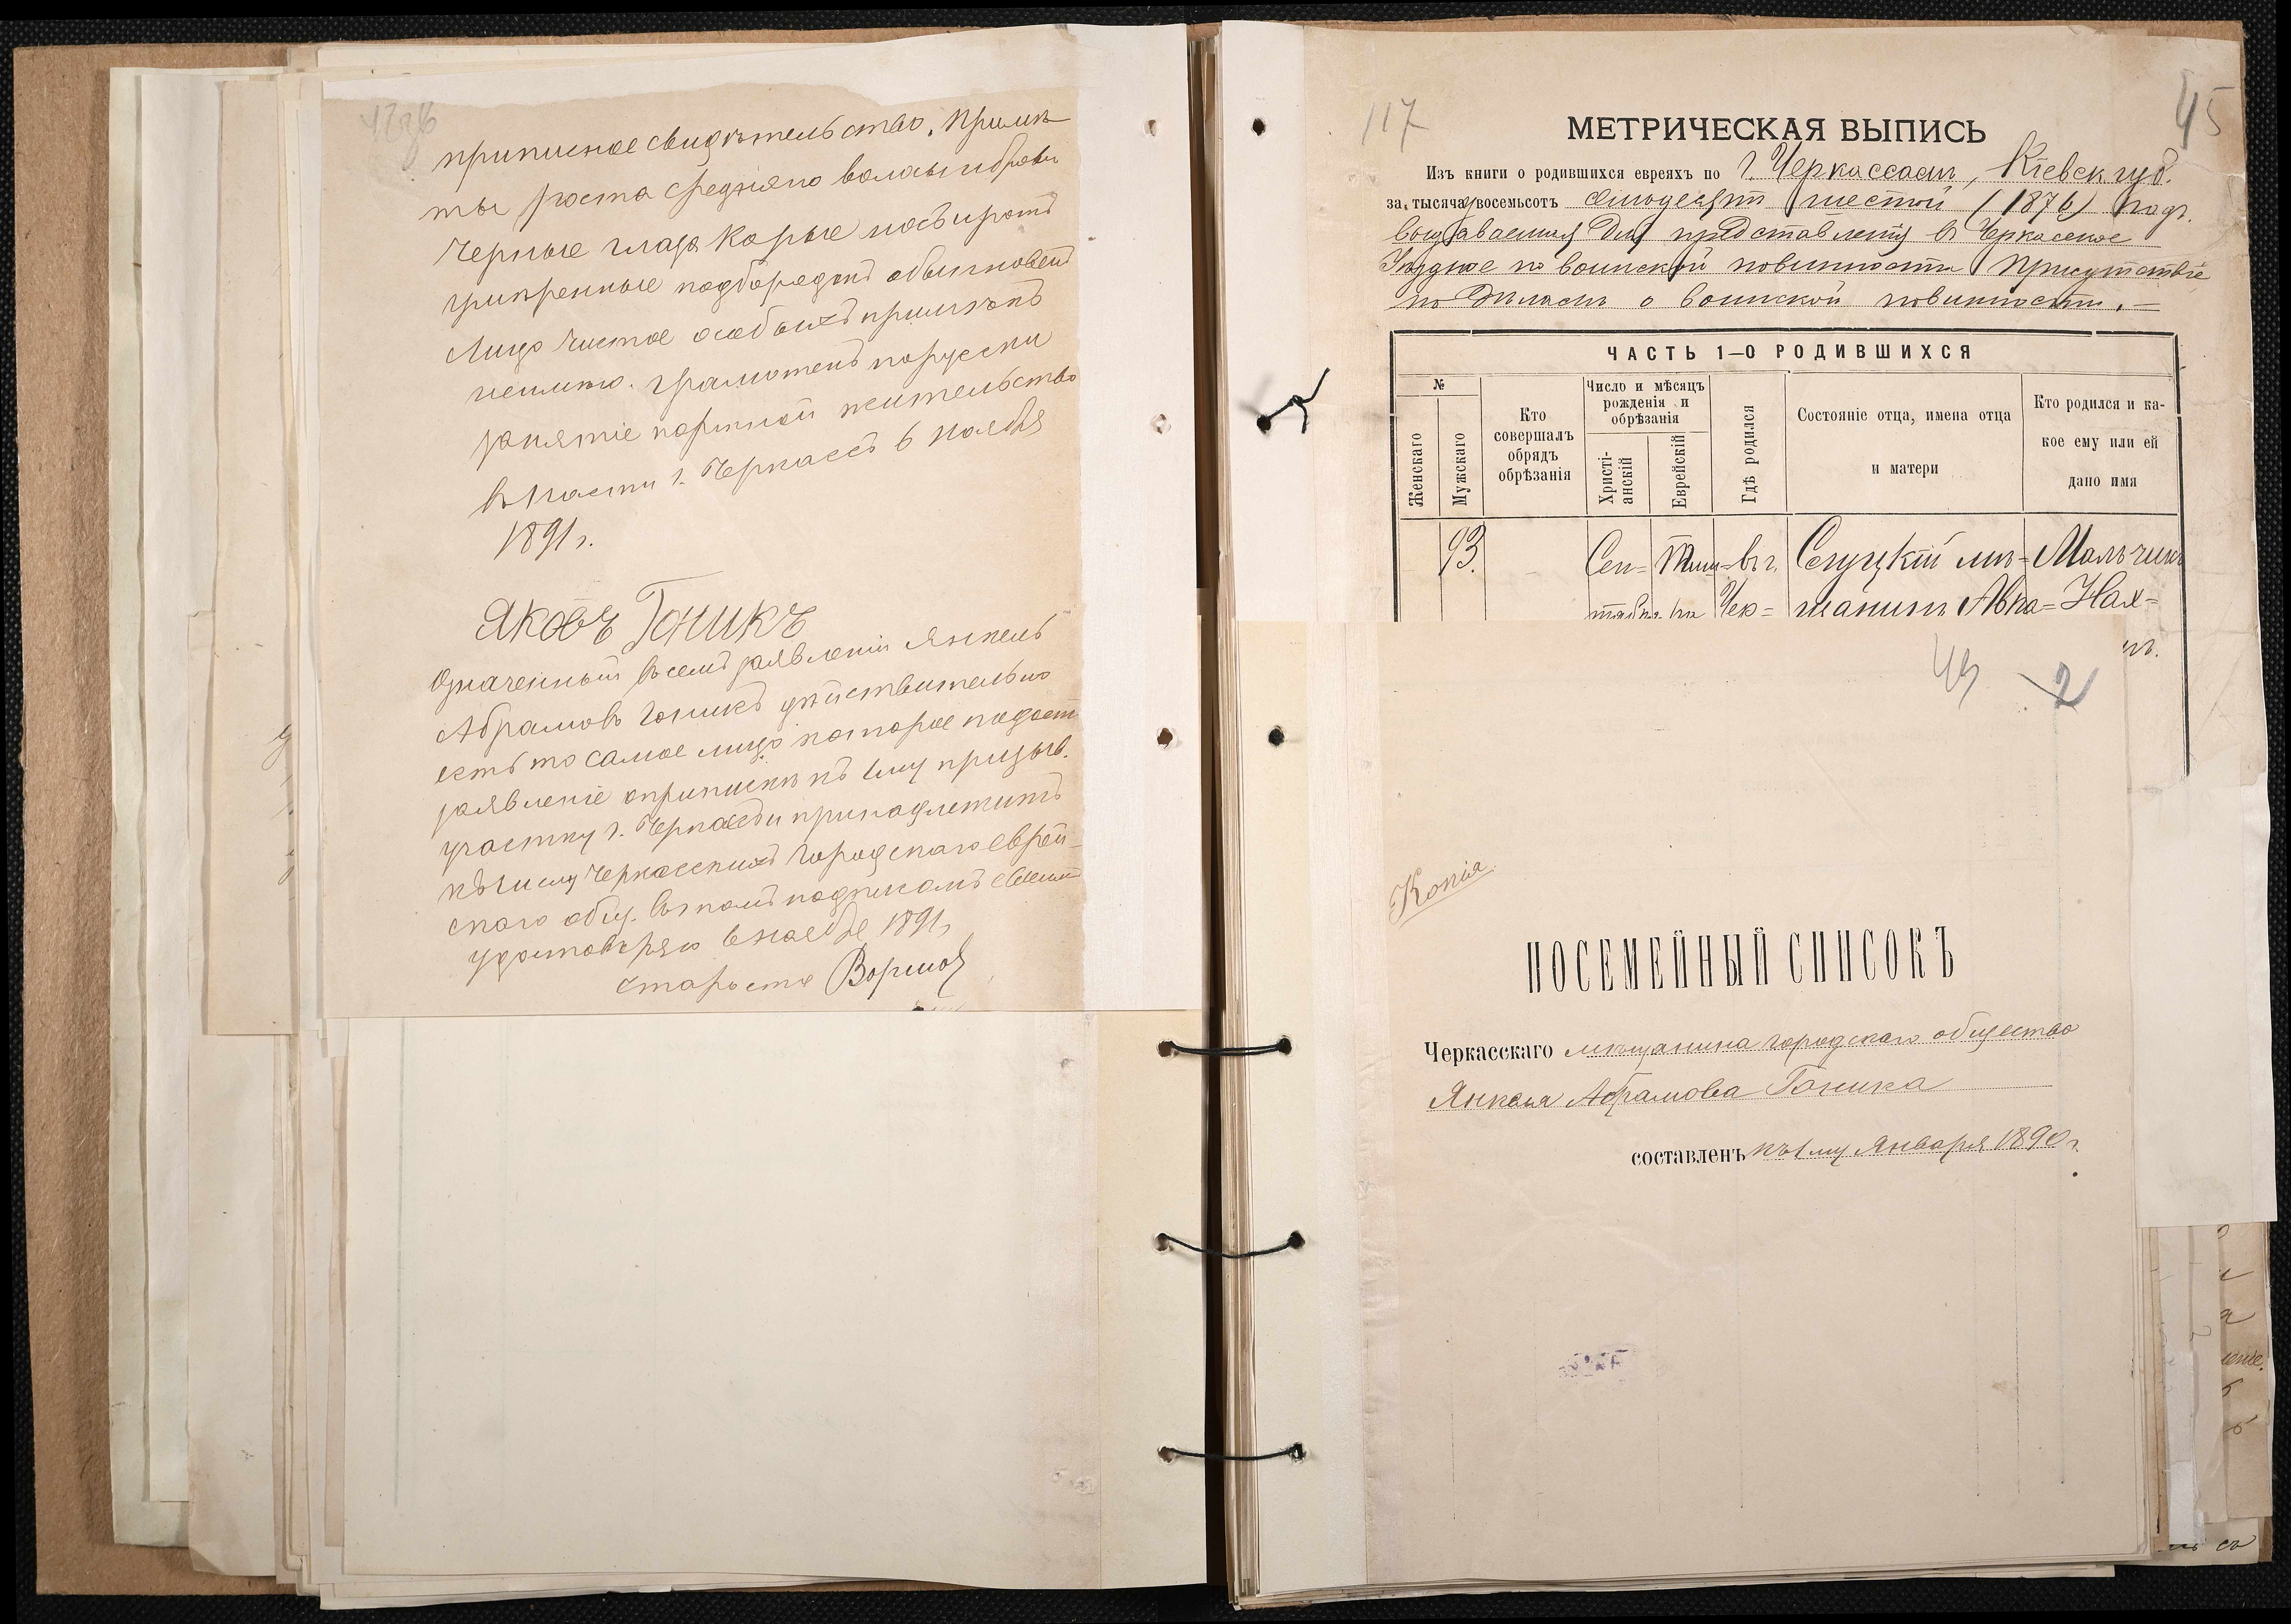 приписное свидѣтельство. Примѣ
ты роста средняго волосы и брови
черные глаза карые носъ и ротъ
умѣренные подбородокъ обыкновен
лицо чистое особыхъ примѣтъ
неимѣю. грамотенъ порусски
занятіе портной жительство
въ части г. Черкассъ 6 ноября
1891 г.
Яковъ Гоникъ
Означенный въ семъ заявленіи Янкель
Абрамовъ Гоникъ дѣйствительно
есть то самое лицо которое подает
заявленіе о припискѣ къ 1му призыв.
участку г. Черкассъ и принадлежитъ
къ числу Черкасскихъ Городскаго еврей-
скаго общ. въ томъ подписомъ своимъ
удостовѣряю 6 ноября 1891 г
староста
117
45
МЕТРИЧЕСКАЯ ВЫПИСЬ
Изъ книги о родившихся евреяхъ по г. Черкассамъ, Кіевск губ.
за тысяча восемьсотъ семьдесятъ шестой (1876) годъ.
выдаваемая для представленія въ Черкасское
Уѣздное по воинской повинности Присутствіе
по дѣламъ о воинской повинности. —
ЧАСТЬ 1—О РОДИВШИХСЯ
№
Женскаго
Мужскаго
Кто совершалъ обрядъ обрѣзанія
Число и мѣсяцъ рожденія и обрѣзанія
Христі-анскій
Еврейскій
Гдѣ родился
Состояніе отца, имена отца и матери
Кто родился и ка-кое ему или ей дано имя
93. Сен= Тиш= въ г. Слуцкій мѣ= Мальчикъ
тября Чер= щанинъ Абра= Нах=
43 2
Копія
ПОСЕМЕЙНЫЙ СПИСОКЪ
Черкасскаго мѣщанина городскаго общества
Янкеля Абрамова Гоника
составленъ къ 1му Января 1890 г.